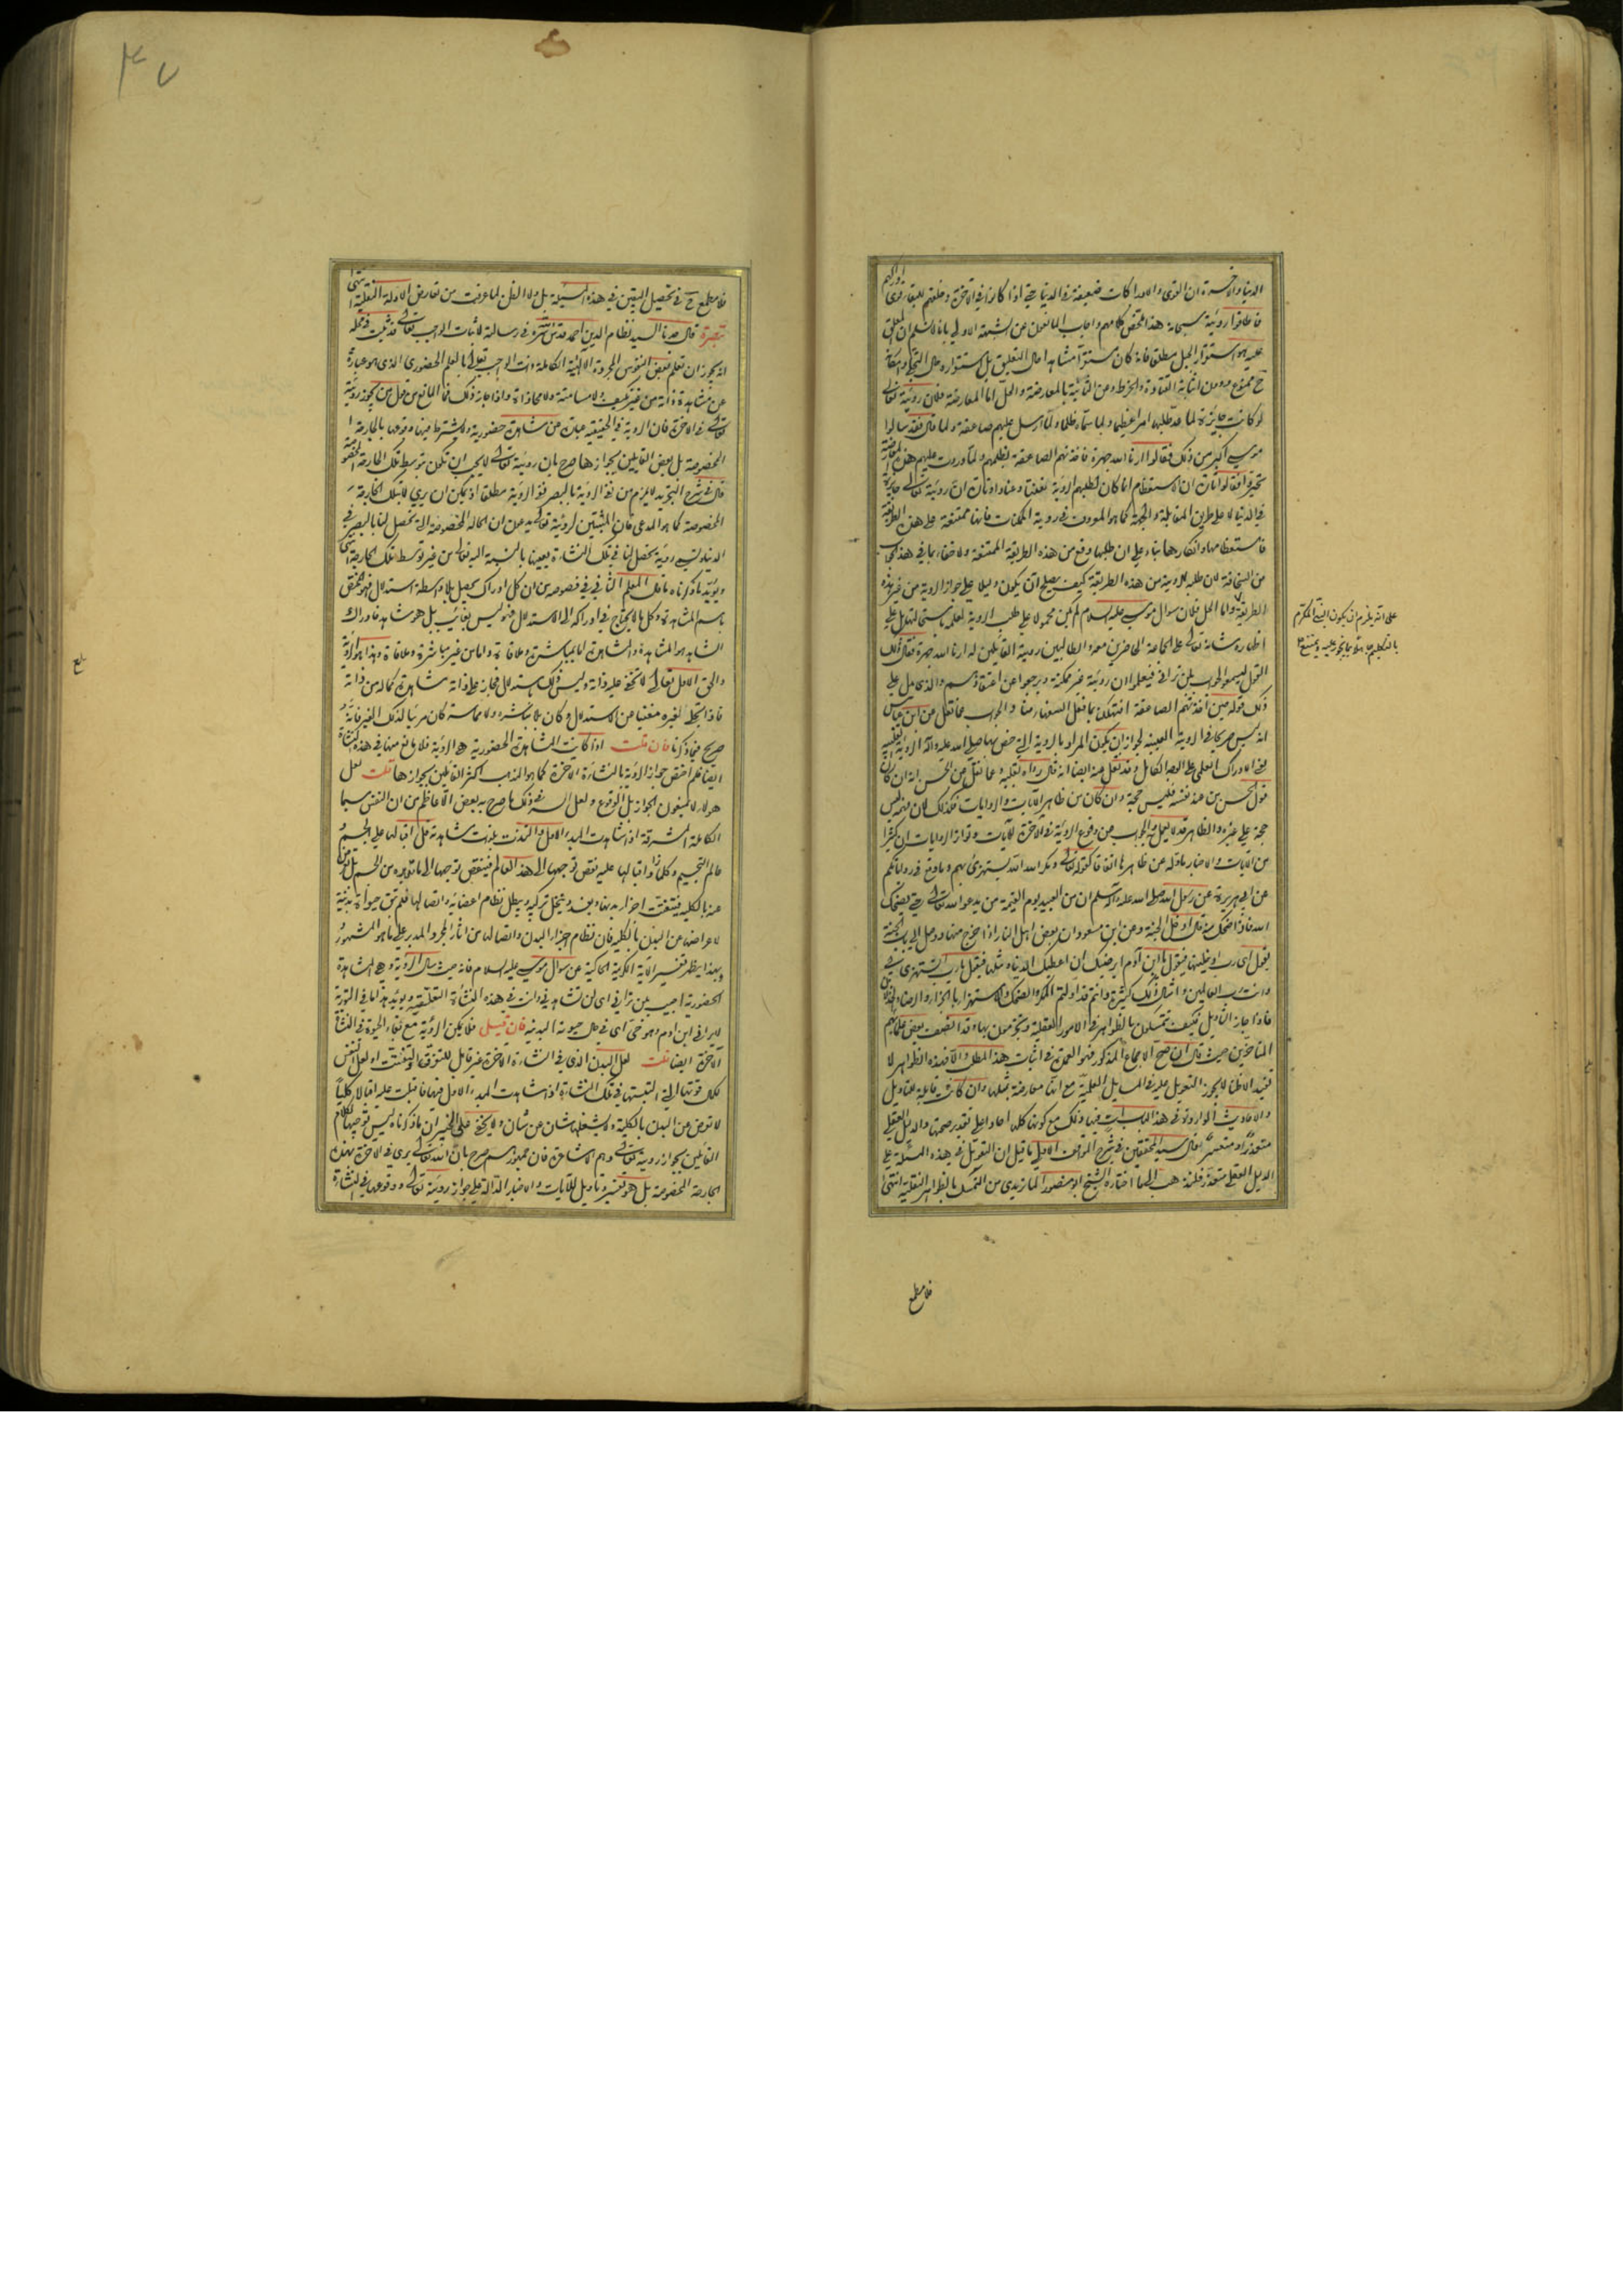 الدنيا والاخرة ان القوى والادراكات ضعيفة في الدنيا حتى اذا كانوا في الآخرة وخلقهم للبقاء قوى ادراكهم
فاطاقوا رؤيته سبحانه هذا ملخص كلامهم واجاب المانعون عن الشبهة الاولى بانا لا نسلم ان المعلق
عليه هو استقرار الجبل مطلقا فانه كان مستقرا مشاهدا حال التعليق بل استقراره حال التجلي وامكانه
ح ممنوع ومن الثانية بالمعارضة والحل اما المعارضة فلان رؤيته تعالى
لو كانت جايزة لما عد طلبها امرا عظيما ولما سماه ظلما ولما ارسل عليهم صاعقة ولما قال فقد سألوا
موسى اكبر من ذلك فقالوا ارنا الله جهرة فاخذتهم الصاعقة بظلمهم ولما وردت عليهم هذه المعارضة
فقالوا تارة ان الاستعظام انما كان لطلبهم الرؤية تعنتا وعنادا وتارة ان رؤيته تعالى جايزة
في الدنيا لا على طريق المقابلة والجهة كما هو المعروف في رؤية الممكنات فانها ممتنعة على هذه الطريقة
فاستعظامها وانكارها بناء على ان طلبها وقع من هذه الطريقة الممتنعة ولا خفاء بما في هذا الجواب
من السخافة لان طلبه للرؤية من هذه الطريقة كيف يصلح ان يكون دليلا على جواز الرؤية من غير هذه
الطريقة واما الحل فلان سؤال موسى عليه السلام لم يكن محمولا على طلب الرؤية لعلمه باستحالتها بل على
اظهار شانه تعالى على الجماعة الحاضرين معه الطالبين رؤية القائلين له ارنا الله جهرة فقال ذلك
القول ليسمعوا الجواب بلن تراني فيعلموا ان رؤيته غير ممكنة ويرجعوا عن اعتقادهم والذي يدل على
ذلك قوله حين اخذتهم الصاعقة اتهلكنا بما فعل السفهاء منا والجواب عما نقل عن ابن عباس
انه ليس صريحا في الرؤية العينية لجواز ان يكون المراد بالرؤية التي خص بها صلى الله عليه وآله الرؤية القلبية
يعني الادراك العلمي على الوجه الكامل وقد نقل عنه ايضا انه قال رآه بقلبه وعما نقل من الحسن انه ان كان
قول الحسن من عند نفسه فليس حجة وان كان من ظاهر الآيات والروايات فكذلك لان فهمه ليس
حجة على غيره والظاهر قد لا يعمل به والجواب عن وقوع الرؤية في الآخرة للآيات وتواتر الروايات ان كثيرا
من الآيات والاخبار مأولة عن ظاهرها اتفاقا كقوله تعالى ومكر الله الله يستهزئ بهم وما وقع في رواياتكم
عن ابي هريرة عن رسول الله صلى الله عليه وآله وسلم ان من العبيد يوم القيمة من يدعو الله تعالى حتى يضحك
الله فاذا ضحك منه قال ادخل الجنة وعن ابن مسعود ان بعض اهل النار اذا خرج منها ووصل الى باب الجنة
يقول اي رب ادخلنيها فيقول يا ابن آدم ايرضيك ان اعطيك الدنيا ومثلها فيقول يا رب اتستهزئ بي
وانت رب العالمين وامثال ذلك كثيرة وانتم قد اولتم المكر والضحك والاستهزاء بالجزاء والرضاء
فاذا جاز التاويل فكيف تتمسكون بالظواهر في الامور العقلية وتجزمون بها وقد انصف بعض علمائهم
المتاخرين حيث قال ان صح الاجماع المذكور فهو العمدة في اثبات هذا المطلب والا فهذه الظواهر لا
تفيد الا ظنا لا يجوز التعويل عليه في المسايل العلمية مع انها معارضة بمثلها وان كانت قابلة للتاويل
والاحاديث الواردة في هذا الباب فيها وذلك مع كونها كلها احادا على تقدير صحتها والدليل العقلي
متعذر او متعسر وقال سيد المحققين في شرح المواقف الاولى ما قيل ان التعويل في هذه المسئلة على
الدليل العقلي متعذر فلنذهب الى ما اختاره الشيخ ابو منصور الماتريدي من التمسك بالظواهر النقلية انتهى
فلا مطمع
على انه يلزم ان يكون النبي المكرم
بالتكليم جاهلا بما يجوز عليه ويمتنع
فلا مطمع ح في تحصيل اليقين في هذه المسئلة بل ولا الظن لما عرفت من تعارض الادلة النقلية انتهى
تبصرة قال جدنا السيد نظام الدين احمد قدس سره في رسالة لاثبات الواجب تعالى قد ثبت في محله
انه يجوز ان تعلم بعض النفوس المجردة الالهية الكاملة ذات الواجب تعالى بالعلم الحضوري الذي هو عبارة
عن مشاهدة ذاته من غير كيف ولا مسامتة ولا محاذاة واذا جاز ذلك فما المانع من قبل من يجوز رؤيته
تعالى في الآخرة فان الرؤية في الحقيقة عبارة عن مشاهدة حضورية ولا يشترط فيها وقوعها بالجارحة
المخصوصة بل بعض القايلين بجوازها صرح بان رؤيته تعالى لا يجب ان تكون بتوسط تلك الجارحة المخصوصة
قال في شرح التجريد لا يلزم من نفي الرؤية بالبصر نفي الرؤية مطلقا اذ يمكن ان يرى لا بتلك الجارحة
المخصوصة كما هو المدعى فان المثبتين لرؤيته تعالى يدعون ان الحالة المخصوصة التي تحصل لنا بالبصر في
الدنيا وتسمى رؤية تحصل لنا في تلك النشاة بعينها بالنسبة اليه تعالى من غير توسط تلك الجارحة انتهى
ويؤيد ما ذكرناه ما قال المعلم الثاني في فصوصه من ان كل ادراك يحصل بلا واسطة استدلال فهو المختص
باسم المشاهدة وكل ما لا يحتاج في ادراكه الى الاستدلال فهو ليس بغائب بل هو شاهد فادراك
الشاهد هو المشاهدة والمشاهدة اما بمباشرة وملاقاة واما من غير مباشرة وملاقاة وهذا هو الرؤية
والحق الاول تعالى لا يخفى عليه ذاته وليس ذلك باستدلال فجايز على ذاته مشاهدة كماله من ذاته
فاذا تجلى لغيره مغنيا عن الاستدلال وكان بلا مباشرة ولا مماسة كان مرئيا لذلك الغير فانه
صريح فيما ذكرنا فان قلت اذا كانت المشاهدة الحضورية هي الرؤية فلا مانع منها في هذه النشاة
ايضا فلم اختص جواز الرؤية بالنشاة الآخرة كما هو المذهب اكثر القايلين بجوازها قلت لعل
هؤلاء لا ينفون الجواز بل الوقوع ولعل السر في ذلك ما صرح به بعض الاعاظم من ان النفس سيما
الكاملة المشرقة اذا شاهدت المبدء الاول والتذت بلذات مشاهدته قل اقبالها على الجسم
عالم التجسيم وكلما زاد اقبالها عليه نقص توجهها الى هذا العالم فينقص توجهها الى ما تدبره من الجسم
عنه بالكلية فيتفتت اجزاء بدنها ويفسد وينحل تركيبه ويبطل نظام اعضائه واتصالها فلم تبق حيوة بدنية
لاعراضها عن البدن بالكلية فان نظام اجزاء البدن واتصالها من اثار المجرد المدبر على ما هو المشهور
وبهذا يظهر تفسير الآية الكريمة الحاكية عن سؤال موسى عليه السلام فانه حيث سال الرؤية وهي المشاهدة
الحضورية اجيب بلن تراني اي لن تشاهدني وانت في هذه النشاة التعلقية ويؤيد هذا ما في التورية
لا يراني ابن ادم وهو حي اي في حال حيوته البدنية فان قيل فلا يمكن الرؤية مع بقاء الحيوة في النشاة
الآخرة ايضا قلت لعل البدن الذي في النشاة الآخرة غير قابل للتفرق والتفتت او لعل النفس
لكل قوتها التي التبستها في تلك النشاة اذا شاهدت المبدء الاول فيها فاقبلت عليه اقبالا كليا
لا تعرض عن البدن بالكلية ولا يشغلها شان عن شان ولا يخفى على الخبير ان ما ذكرناه ليس توجيها لكلام
القائلين بجواز رؤيته تعالى وهم الاشاعرة فان جمهورهم صرح بان الله تعالى يرى في الآخرة بهذه
الجارحة المخصوصة بل هو تفسير وتاويل للآيات والاخبار الدالة على جواز رؤيته تعالى ووقوعها في النشاة
بلغ